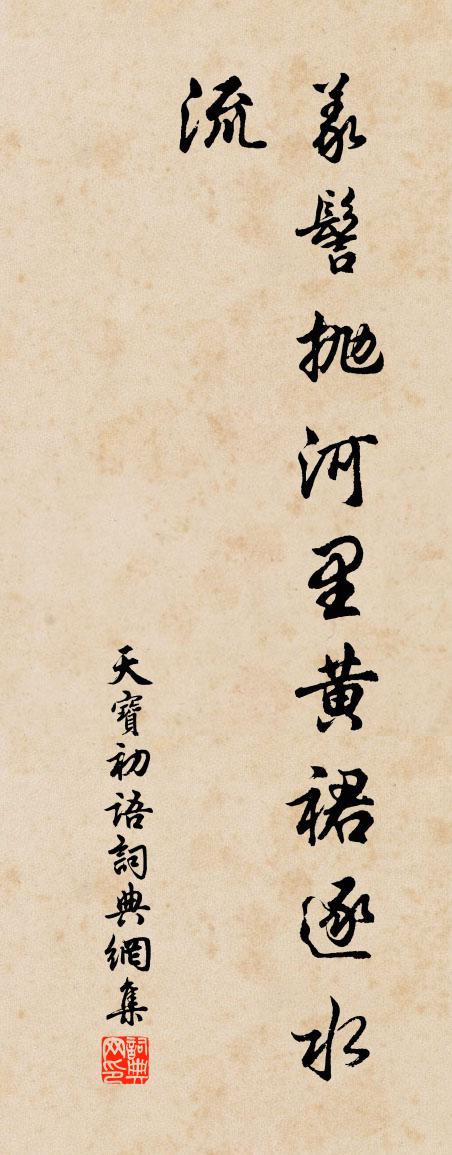 義髻抛河里黄裙逐水
流
天寶初語詞典網集
詞典
网印